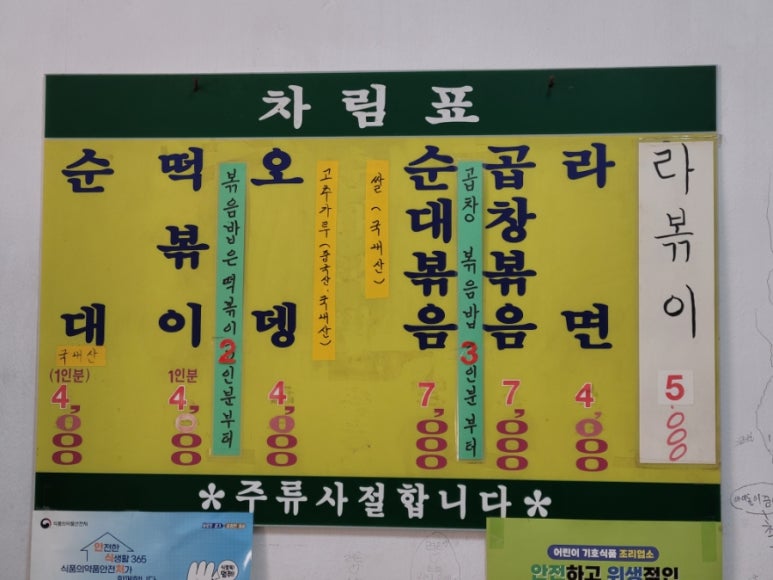 차림표
순대
국내산
(1인분)
4,000
떡볶이
1인분
4,000
볶음밥은 떡볶이 2인분부터
오뎅
4,000
고추가루(중국산·국내산)
쌀(국내산)
순대볶음
7,000
곱창 볶음밥 3인분부터
곱창볶음
7,000
라면
4,000
라볶이
5,000
*주류사절합니다*
식품의약품안전처
안전한
식생활 365
식품의약품안전처가
어린이 기호식품 조리업소
안전하고 위생적인